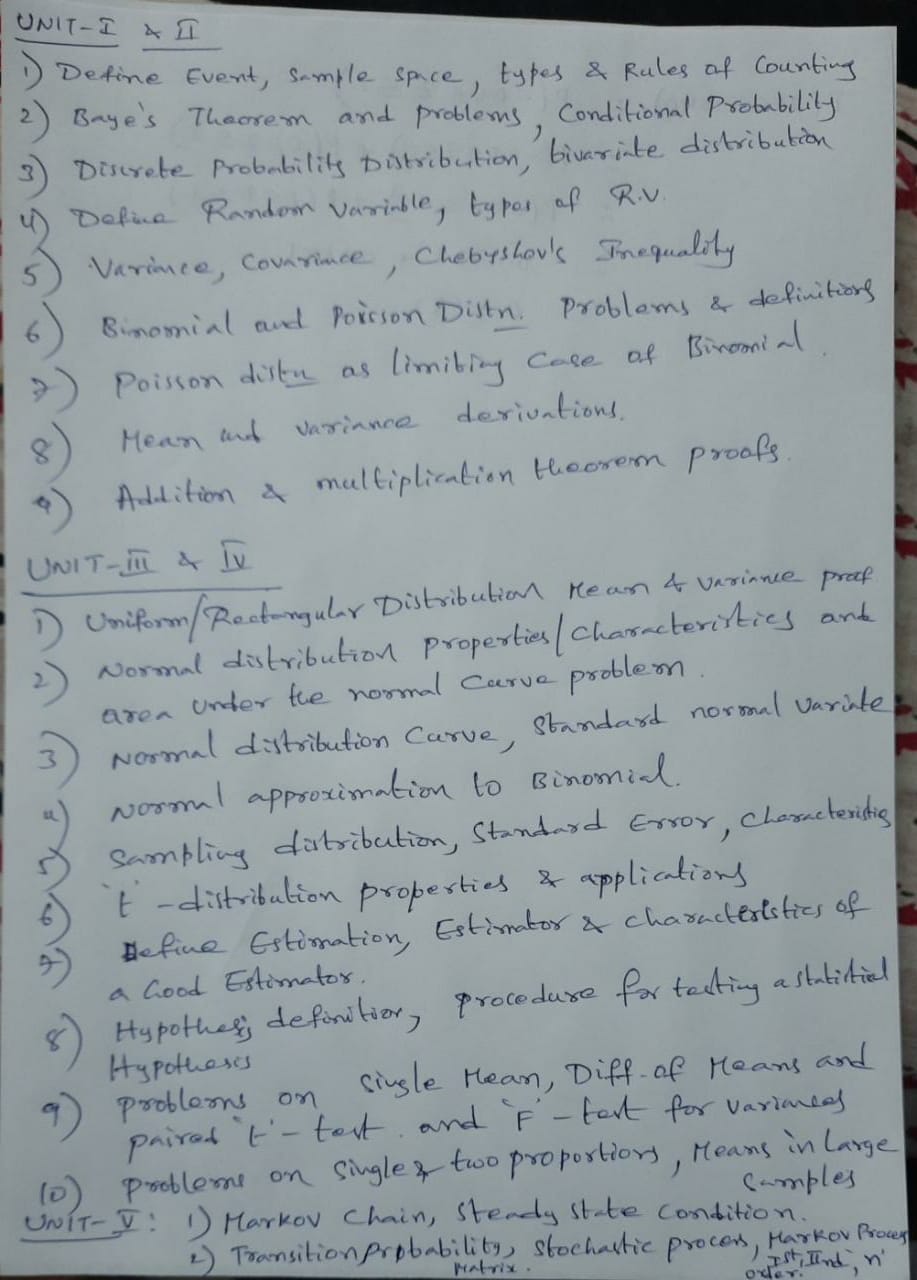 UNIT-I & II
1) Define Event, Sample space, types & Rules of Counting
2) Baye's Theorem and problems, Conditional Probability
3) Discrete Probability Distribution, bivariate distribution
4) Define Random variable, types of R.V.
5) Variance, Covariance, Chebyshov's Inequality
6) Binomial and Poisson Distn. Problems & definitions
7) Poisson distn as limiting case of Binomial.
8) Mean and variance derivations.
9) Addition & multiplication theorem proofs.
UNIT-III & IV
1) Uniform/Rectangular Distribution Mean & variance proof
2) Normal distribution properties/characteristics and
area under the normal curve problem.
3) Normal distribution Curve, Standard normal variate
4) Normal approximation to Binomial.
5) Sampling distribution, Standard Error, characteristics
6) 't' -distribution properties & applications
7) Define Estimation, Estimator & characteristics of
a Good Estimator.
8) Hypothesis definition, procedure for testing a statistical
Hypothesis
9) problems on single Mean, Diff. of Means and
paired 't'-test. and 'F'-test for variances
10) problems on single & two proportions, Means in Large
Samples
UNIT-V: 1) Markov Chain, Steady State Condition.
2) Transition probability, stochastic process, Markov Process
Matrix. Ist, IInd, n'
order.